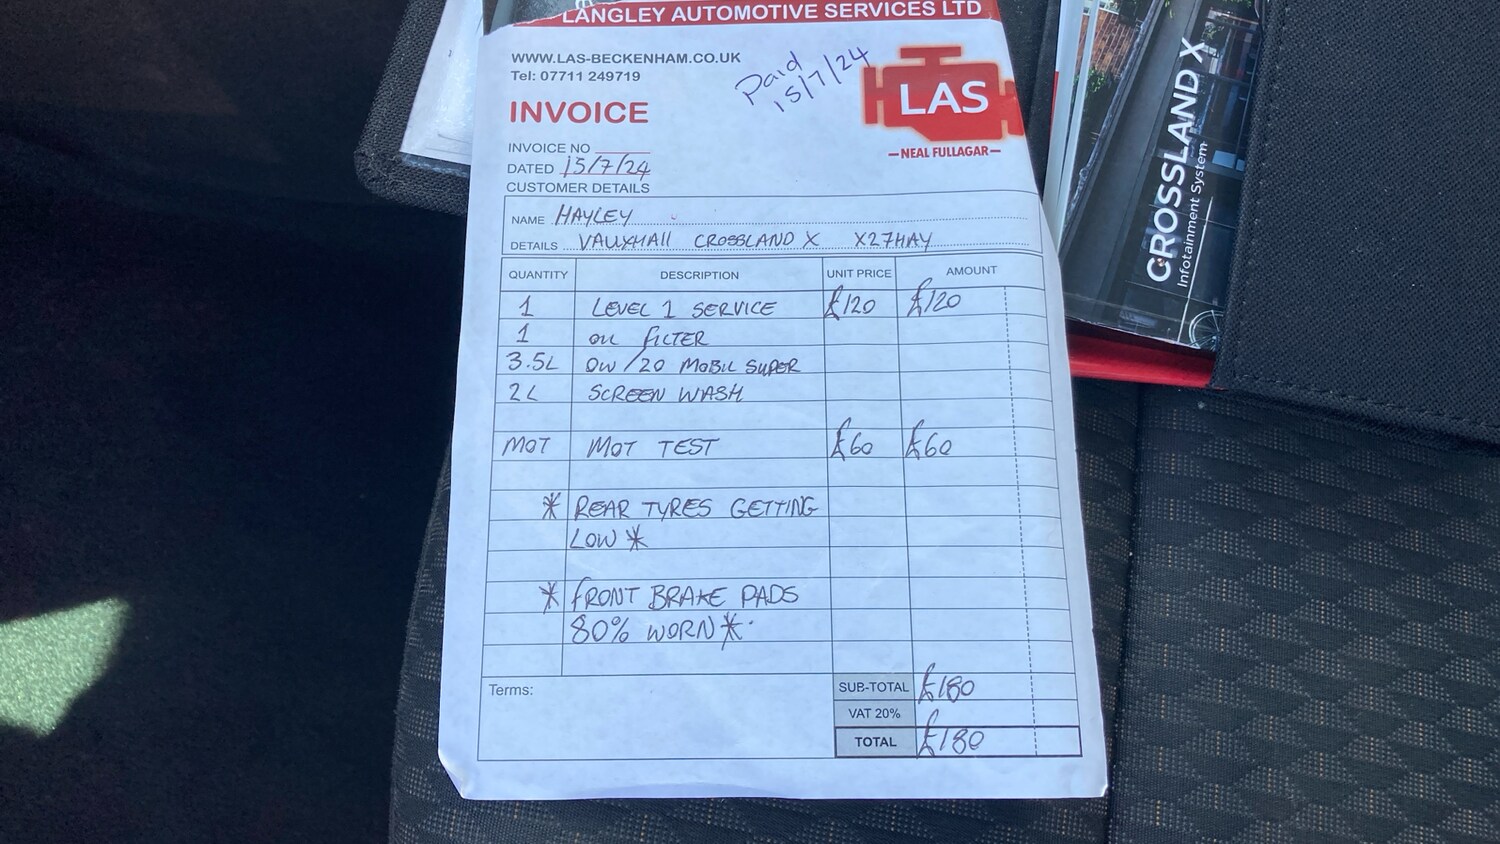 LANGLEY AUTOMOTIVE SERVICES LTD
WWW.LAS-BECKENHAM.CO.UK
Tel: 07711 249719
Paid
15/7/24
LAS
—NEAL FULLAGAR—
INVOICE
INVOICE NO
DATED 15/7/24
CUSTOMER DETAILS
NAME HAYLEY
DETAILS VAUXHAll CROSSLAND X X27HAY
QUANTITY DESCRIPTION UNIT PRICE AMOUNT
1 LEVEL 1 SERVICE £120 £120
1 OIL FILTER
3.5L 0W/20 MOBIL SUPER
2L SCREEN WASH
MOT MOT TEST £60 £60
* REAR TYRES GETTING
LOW *
* FRONT BRAKE PADS
80% WORN *
Terms:
SUB-TOTAL £180
VAT 20%
TOTAL £180
CROSSLAND X
Infotainment System